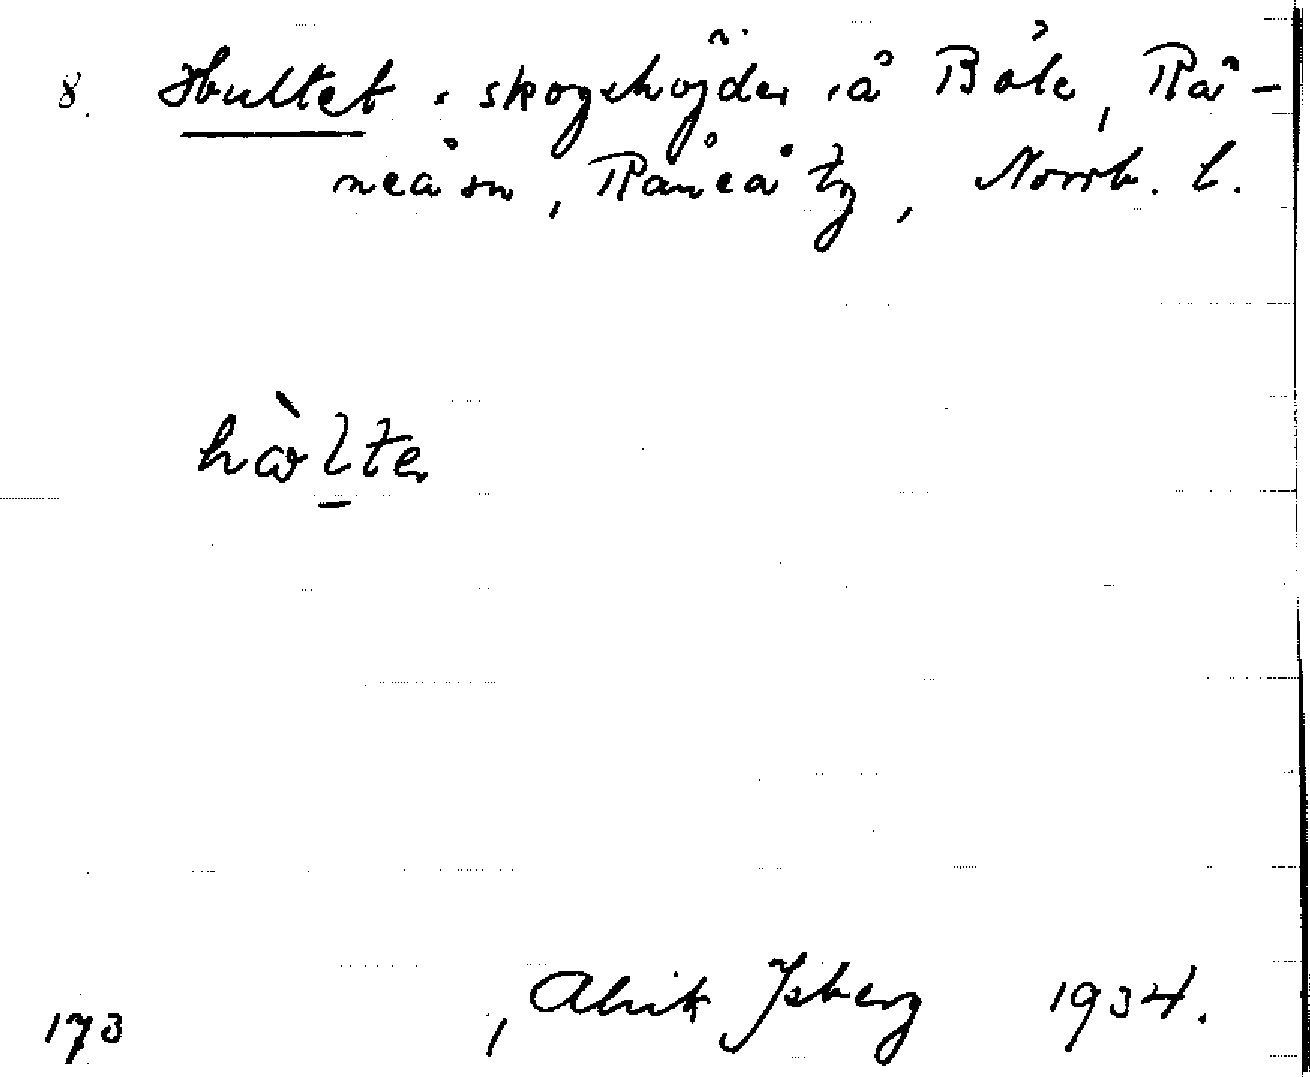 8. Hultet, skogshöjder, å Böle, Rå-
neå sn, Råneå tg, Norrb. l.
hωlte
173 Alrik Isberg 1934.